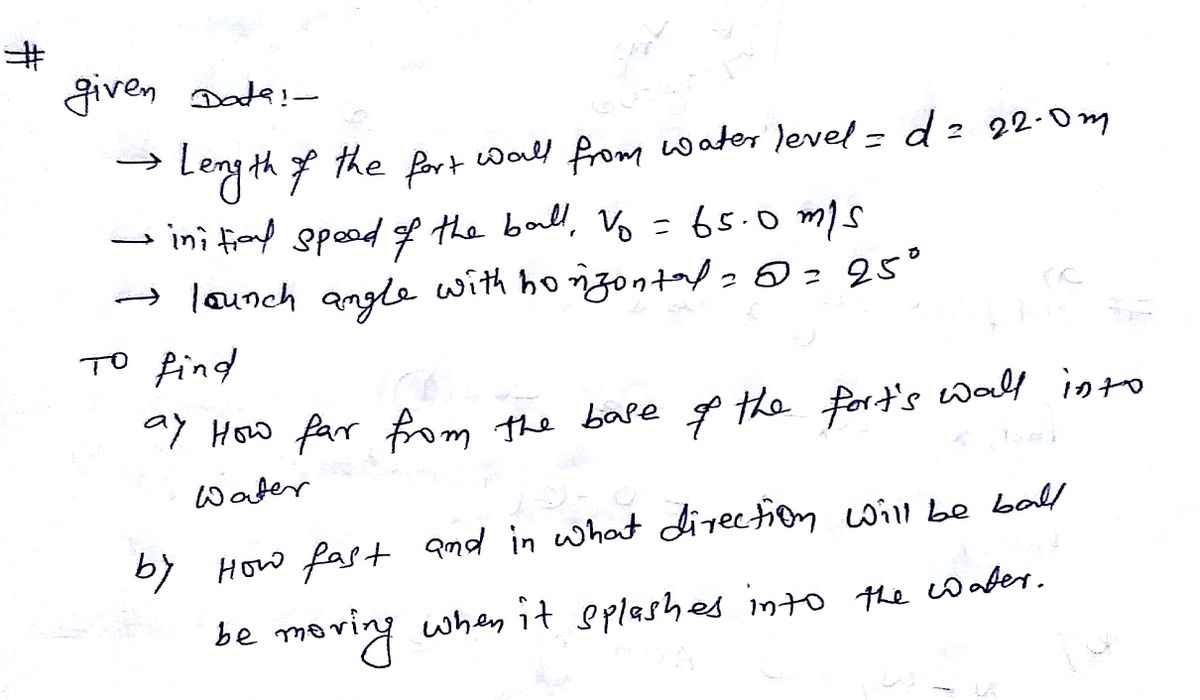 #
given Data:-
→ Length of the fort wall from water level = d = 22.0m
→ initial speed of the ball, V₀ = 65.0 m/s
→ launch angle with horizontal = θ = 25°
To find
a) How far from the base of the fort's wall into
water
b) How fast and in what direction will be ball
be moving when it splashes into the water.